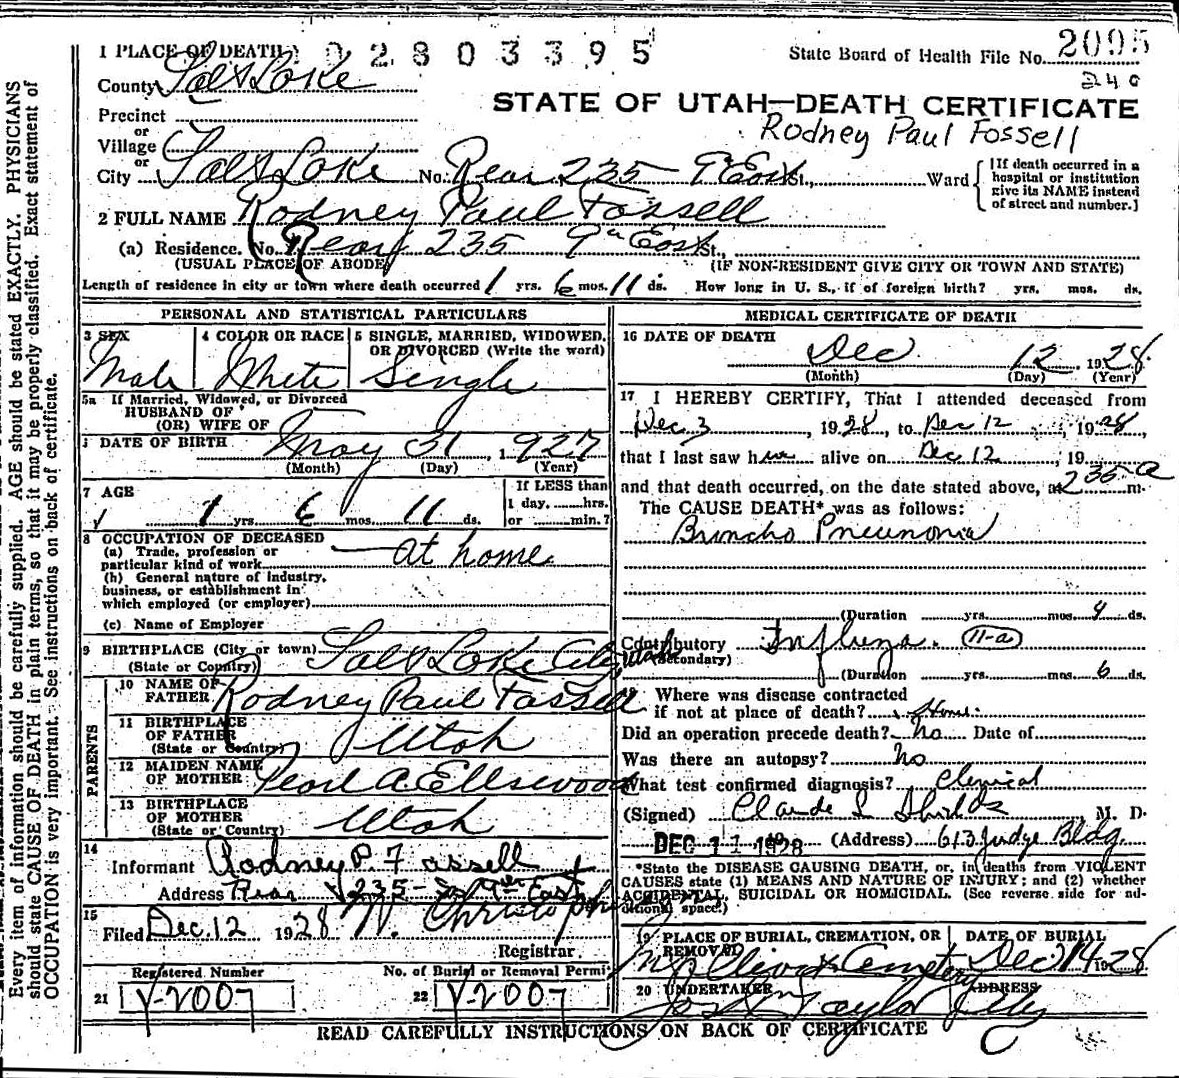 1 PLACE OF DEATH
02803395
State Board of Health File No. 2095
240
County Salt Lake
STATE OF UTAH—DEATH CERTIFICATE
Rodney Paul Fossell
Precinct
or
Village
or
City Salt Lake No. Rear 235 - 9th East St., Ward
[If death occurred in a
hospital or institution
give its NAME instead
of street and number.]
2 FULL NAME Rodney Paul Fossell
(a) Residence. No. Rear 235 9th East St.,
(USUAL PLACE OF ABODE) (IF NON-RESIDENT GIVE CITY OR TOWN AND STATE)
Length of residence in city or town where death occurred 1 yrs. 6 mos. 11 ds. How long in U. S., if of foreign birth? yrs. mos. ds.
PERSONAL AND STATISTICAL PARTICULARS
3 SEX
Male
4 COLOR OR RACE
White
5 SINGLE, MARRIED, WIDOWED,
OR DIVORCED (Write the word)
Single
5a If Married, Widowed, or Divorced
HUSBAND OF
(OR) WIFE OF
DATE OF BIRTH May 31, 1927
(Month) (Day) (Year)
7 AGE
1 yrs. 6 mos. 11 ds.
If LESS than
1 day, hrs.
or min.?
8 OCCUPATION OF DECEASED
(a) Trade, profession or
particular kind of work at home
(b) General nature of industry,
business, or establishment in
which employed (or employer)
(c) Name of Employer
9 BIRTHPLACE (City or town)
(State or Country) Salt Lake City, Utah
PARENTS
10 NAME OF
FATHER Rodney Paul Fassell
11 BIRTHPLACE
OF FATHER
(State or Country) Utah
12 MAIDEN NAME
OF MOTHER Pearl A. Ellswood
13 BIRTHPLACE
OF MOTHER
(State or Country) Utah
14
Informant Rodney P. Fassell
Address Rear 235-So 9th East
15
Filed Dec. 12 1928
Registrar
Registered Number
21 Y-2007
No. of Burial or Removal Permit
22 Y-2007
MEDICAL CERTIFICATE OF DEATH
16 DATE OF DEATH
Dec 12, 1928
(Month) (Day) (Year)
17 I HEREBY CERTIFY, That I attended deceased from
Dec 3, 1928, to Dec 12, 1928,
that I last saw him alive on Dec 12, 19
and that death occurred, on the date stated above, at 235 a m.
The CAUSE DEATH* was as follows:
Broncho Pneumonia
(Duration yrs. mos. 4 ds.
Contributory Influenza. 11-a
(Secondary)
(Duration yrs. mos. 6 ds.
Where was disease contracted
if not at place of death? Home
Did an operation precede death? no Date of
Was there an autopsy? No
What test confirmed diagnosis? Clinical
(Signed) Claude L Shields M. D.
DEC 11 1928 (Address) 613 Judge Bldg.
*State the DISEASE CAUSING DEATH, or, in deaths from VIOLENT
CAUSES state (1) MEANS AND NATURE OF INJURY; and (2) whether
ACCIDENTAL, SUICIDAL OR HOMICIDAL. (See reverse side for additional space.)
19 PLACE OF BURIAL, CREMATION, OR
REMOVAL
Mt Olivet Cemetery
DATE OF BURIAL
Dec 14 1928
20 UNDERTAKER
Taylor
ADDRESS
City
READ CAREFULLY INSTRUCTIONS ON BACK OF CERTIFICATE
Every item of information should be carefully supplied. AGE should be stated EXACTLY. PHYSICIANS
should state CAUSE OF DEATH in plain terms, so that it may be properly classified. Exact statement of
OCCUPATION is very important. See instructions on back of certificate.